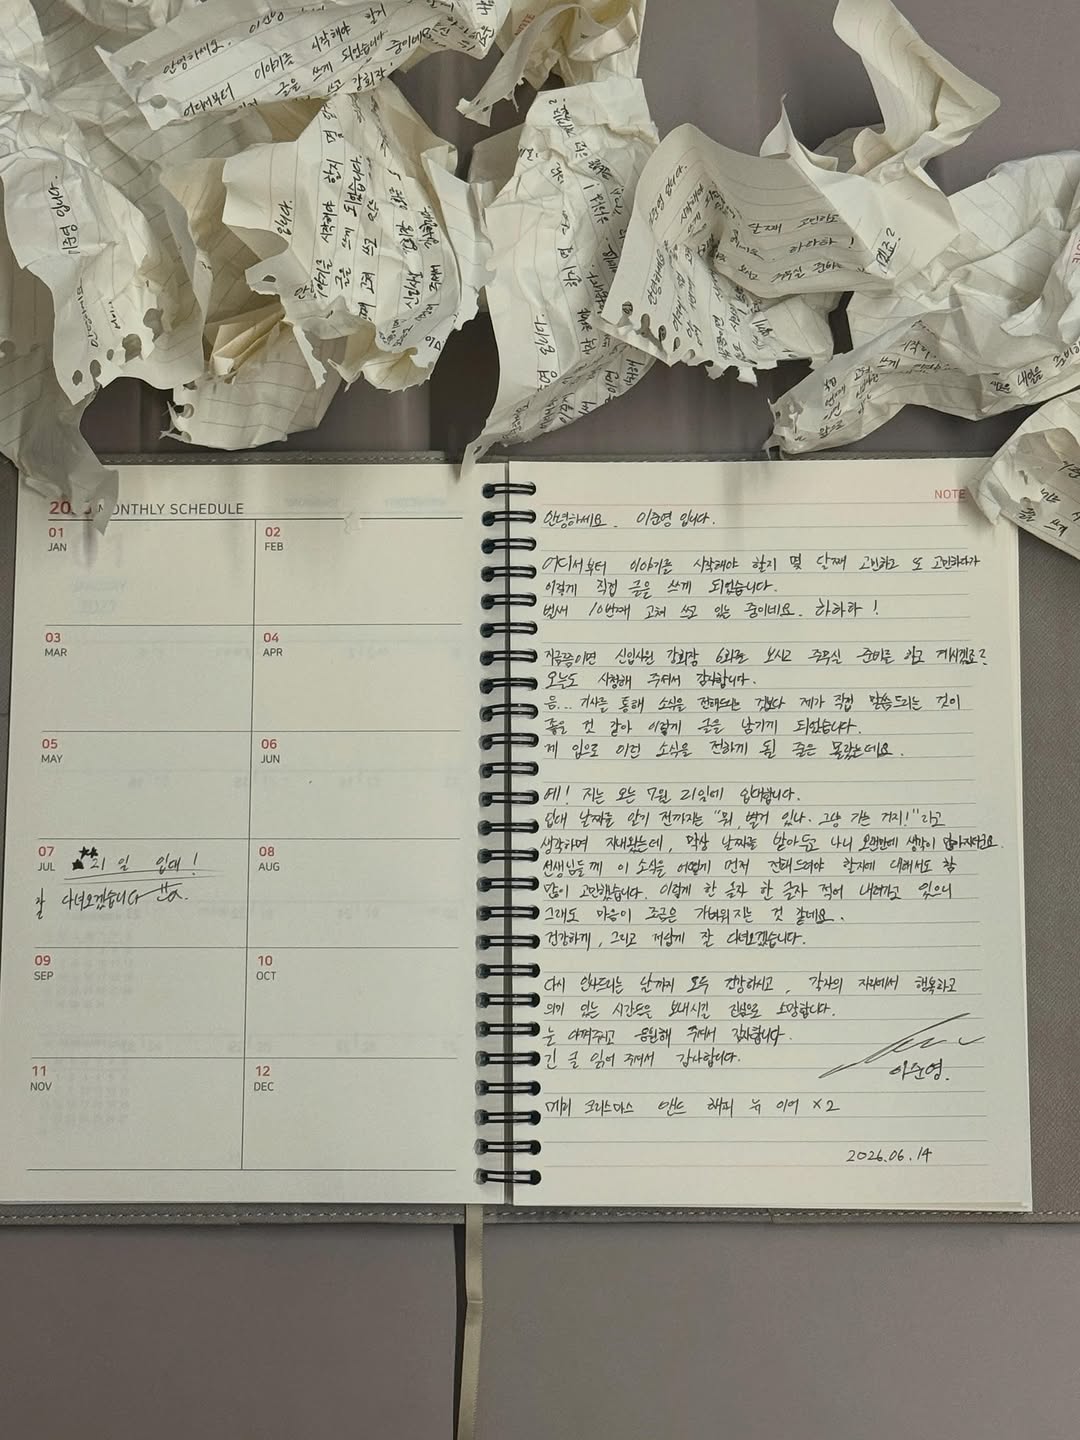 안녕하세요. 이준영
이야기를 시작해야 할지
어디서부터
글을 쓰게 되었습니다
중이네요
쓰고
강회장
NOTE
이준영입니다
입니다.
이야기를 시작해야 할지 몇
글을 쓰게 되었습니다
고쳐 쓰고
신입사원
고민하고
하하하!
MONTHLY SCHEDULE
01
JAN
02
FEB
03
MAR
04
APR
05
MAY
06
JUN
07
JUL
21일 입대!
잘 다녀오겠습니다
08
AUG
09
SEP
10
OCT
11
NOV
12
DEC
NOTE
안녕하세요. 이준영 입니다.
어디서부터 이야기를 시작해야 할지 몇 달째 고민하고 또 고민하다가
이렇게 직접 글을 쓰게 되었습니다.
벌써 10번째 고쳐 쓰고 있는 중이네요. 하하하!
지금쯤이면 신입사원 강회장 6화를 보시고 주무실 준비를 하고 계시겠죠?
오늘도 시청해 주셔서 감사합니다.
음... 기사를 통해 소식을 전해드리는 것보다 제가 직접 말씀드리는 것이
좋을 것 같아 이렇게 글을 남기게 되었습니다.
제 입으로 이런 소식을 전하게 될 줄은 몰랐는데요.
예! 저는 오는 7월 21일에 입대합니다.
입대 날짜를 알기 전까지는 "뭐, 별거 있나. 그냥 가는 거지!"라고
생각하며 지내왔는데, 막상 날짜를 받아두고 나니 오랜만에 생각이 많아지더군요.
선생님들께 이 소식을 어떻게 먼저 전해드려야 할지에 대해서도 참
많이 고민했습니다. 이렇게 한 글자 한 글자 적어 내려가고 있으니
그래도 마음이 조금은 가벼워지는 것 같네요.
건강하게, 그리고 저답게 잘 다녀오겠습니다.
다시 인사드리는 날까지 모두 건강하시고, 각자의 자리에서 행복하고
의미 있는 시간들을 보내시길 진심으로 소망합니다.
늘 아껴주시고 응원해 주셔서 감사합니다.
긴 글 읽어 주셔서 감사합니다.
이준영.
메리 크리스마스 앤드 해피 뉴 이어 x2
2026.06.14